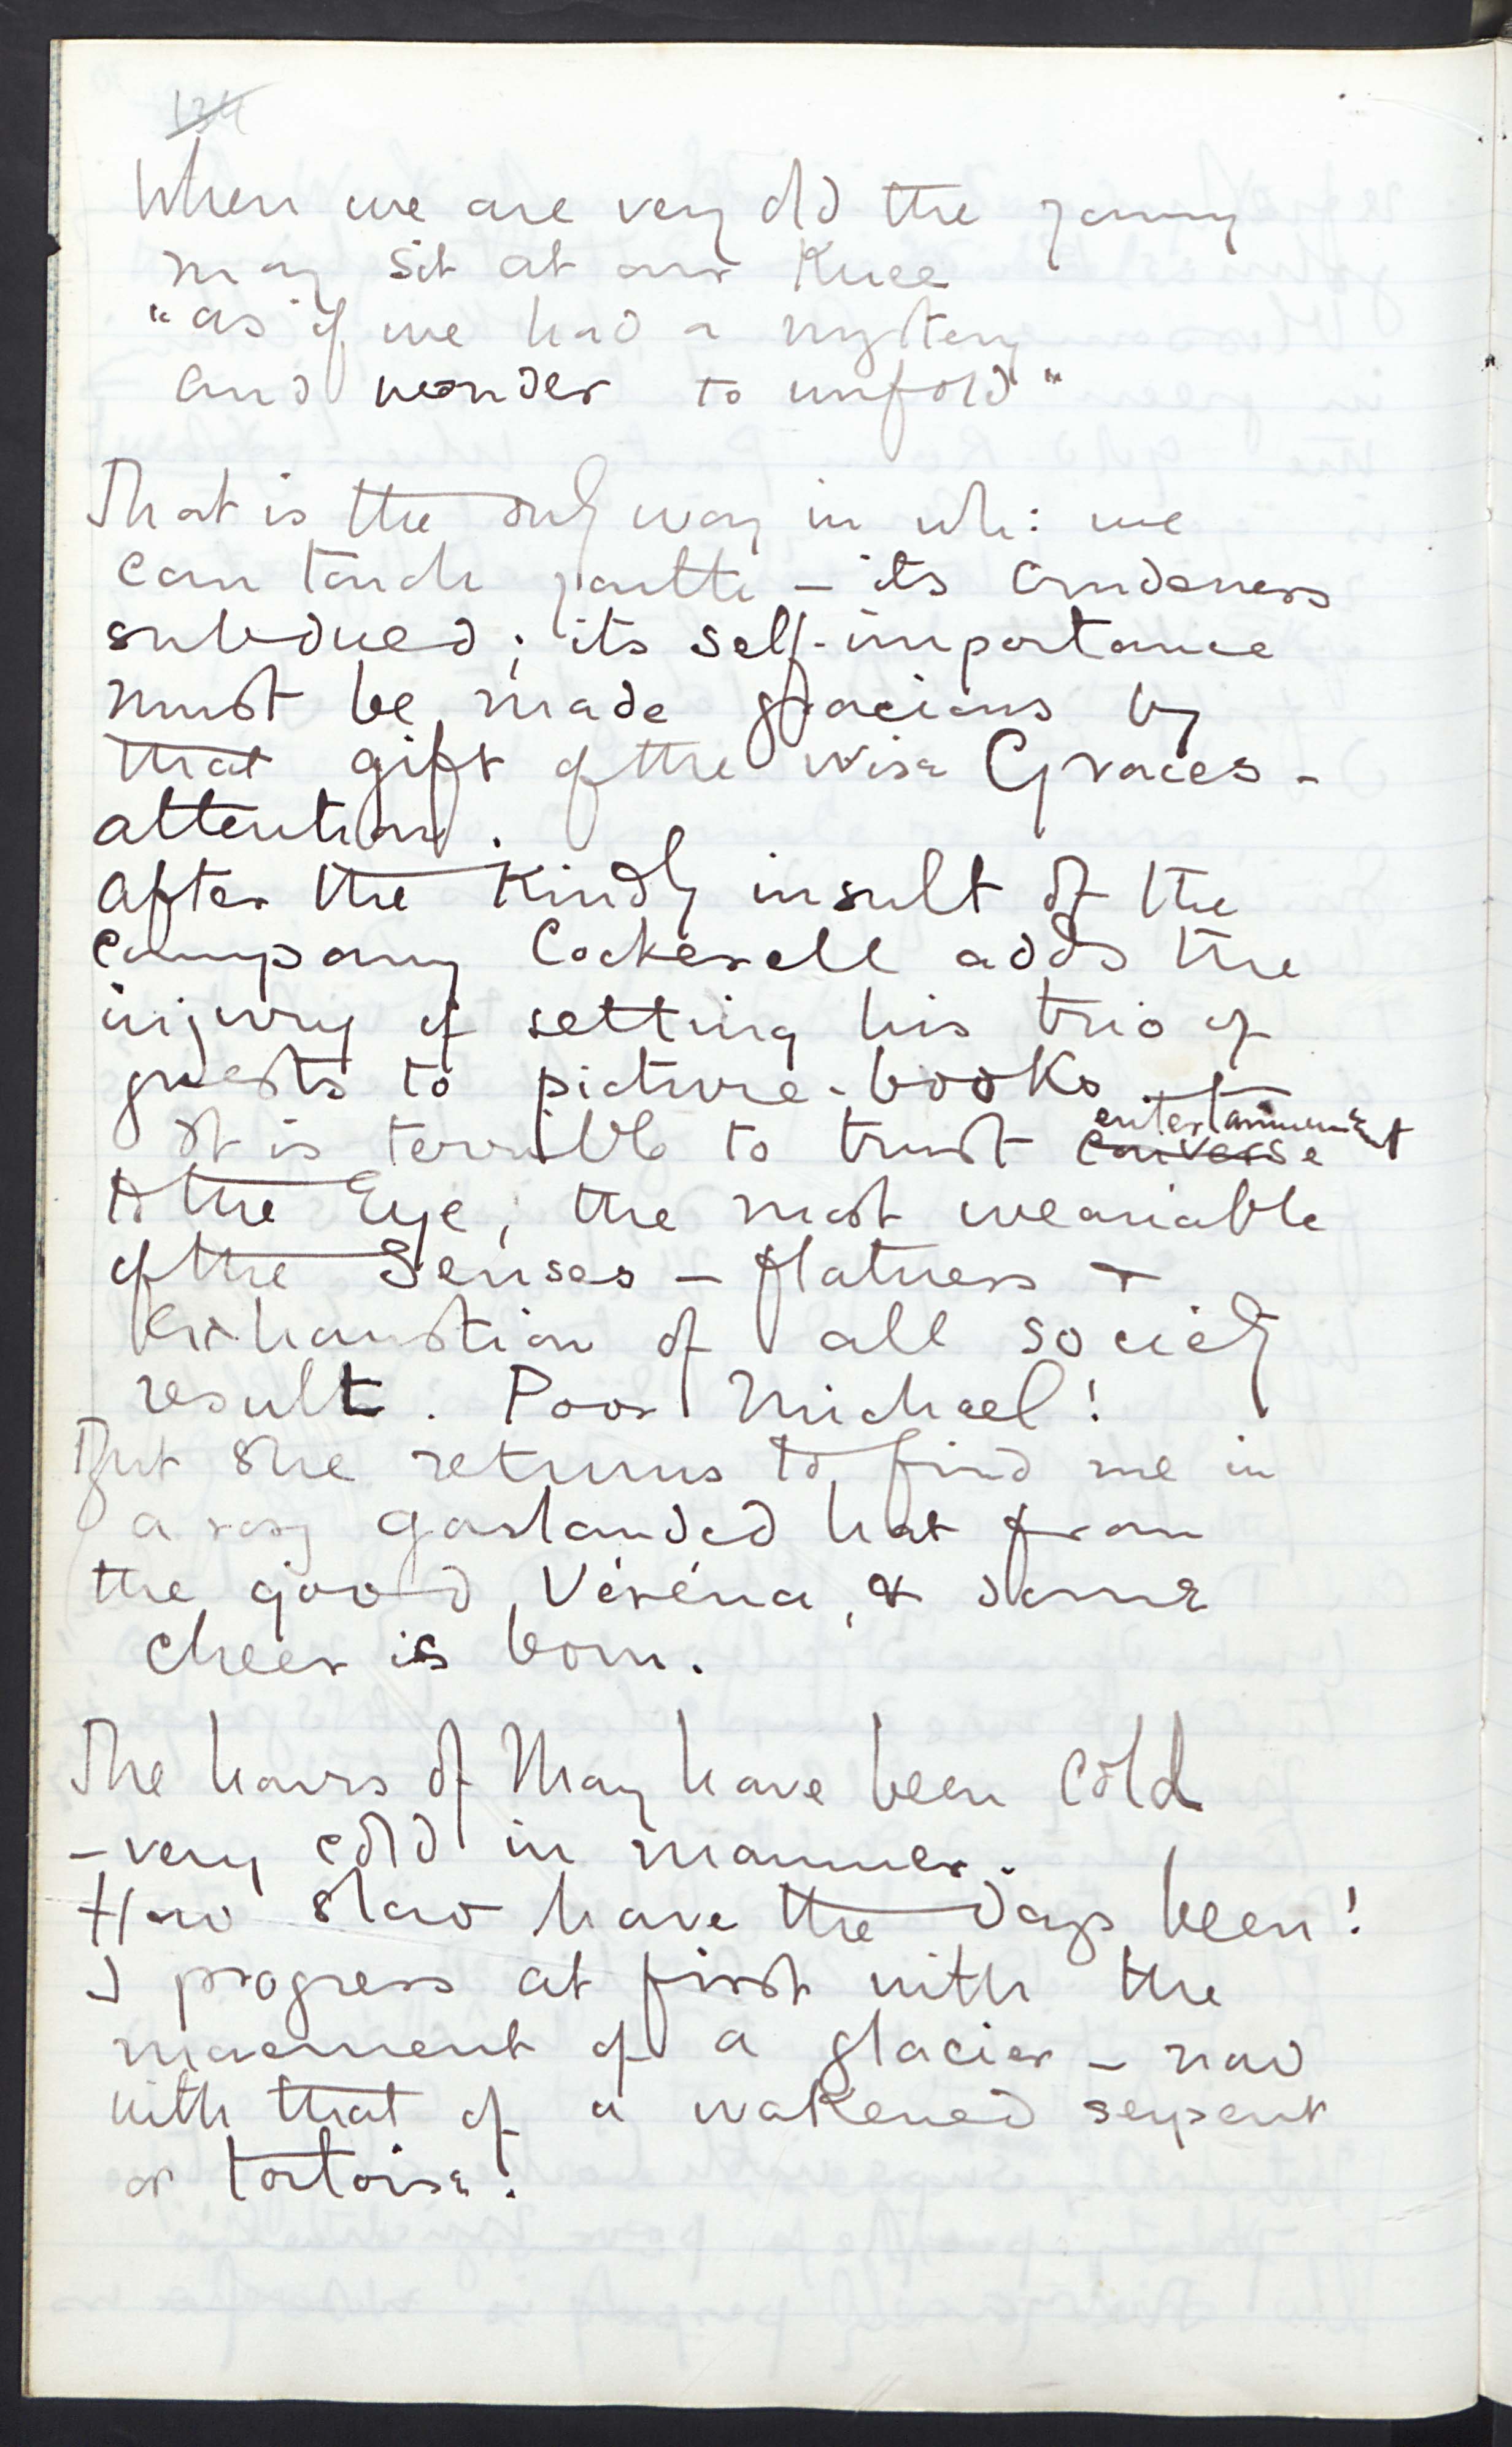 134
When we are very old the young
may sit at our Knee
"as if we had a mystery
and wonder to unfold"
That is the only way in wh: we
can touch youth – its crudeness
subdued; its self-importance
must be made gracious by
that gift of the wise Graces –
attention.
After the Kindly insult of the
company Cockerell adds the
injury of setting his trio of
guests to picture-books.
It is terrible to trust converse entertainment
to the Eye, the most weariable
of the Senses – flatness &
exhaustion of all society
result. Poor Michael!
But she returns to find me in
a rosy garlanded hat from
the good Véréna, & some
cheer is born.
The hours of May have been cold
– very cold in manner.
How slow have the days been!
I progress at first with the
movement of a glacier – now
with that of a wakened serpent
or tortoise.